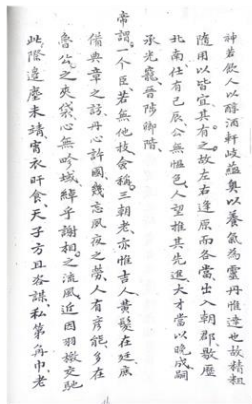 神若飲人以醇酒軒岐縕奧以養氣為靈丹惟達也故精粗
隨用以皆宜其有之故左右逢原而各當出入朝郡敭歷
北南仕有己辰公無慍色人望推其先進大才當以晚成嗣
承光寵晉陟卿階
常謂一个臣若無他技僉稱三朝老亦惟吉人黃髮在廷庶
備典章之訪丹心許國幾忘夙夜之勞人有彥能多在
魯公之夾袋心無吟域緯乎謝相之流風近因羽檄交馳
此際邊塵未靖宵衣旰食天子方且咨諏私第角巾老